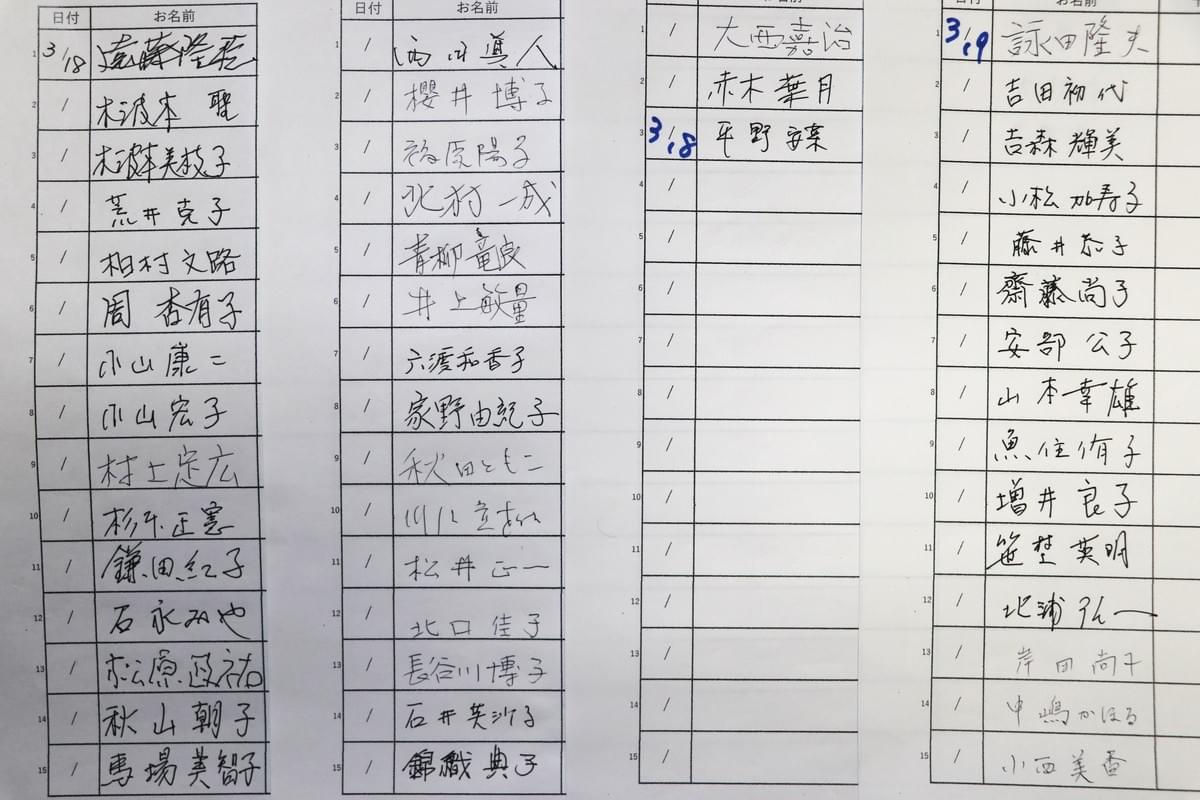 日付 お名前
1 3/18 遠藤隆
2 / 木波本 聖
3 / 木波本美枝子
4 / 荒井克子
5 / 柏村文路
6 / 周 杏有子
7 / 小山康二
8 / 小山宏子
9 / 村上定広
10 / 杉本正憲
11 / 鎌田紅子
12 / 石永みや
13 / 松原政祐
14 / 秋山朝子
15 / 馬場美智子
日付 お名前
1 / 西川眞人
2 / 櫻井博子
3 / 原陽子
4 / 北村一成
5 / 青柳竜良
6 / 井上敏量
7 / 六渡和香子
8 / 家野由紀子
9 / 秋田ともこ
10 /
11 / 松井正一
12 / 北口佳子
13 / 長谷川博子
14 / 石井美沙子
15 / 錦織典子
1 / 大西嘉治
2 / 赤木葉月
3 3/18 平野
4 /
5 /
6 /
7 /
8 /
9 /
10 /
11 /
12 /
13 /
14 /
15 /
日付 お名前
1 3/19 詠田隆夫
2 / 吉田初代
3 / 吉森輝美
4 / 小松加寿子
5 / 藤井恭子
6 / 齋藤尚子
7 / 安部公子
8 / 山本幸雄
9 / 魚住侑子
10 / 増井良子
11 / 笹埜英明
12 / 北浦弘一
13 / 岸田尚子
14 / 中嶋かほる
15 / 小西美香